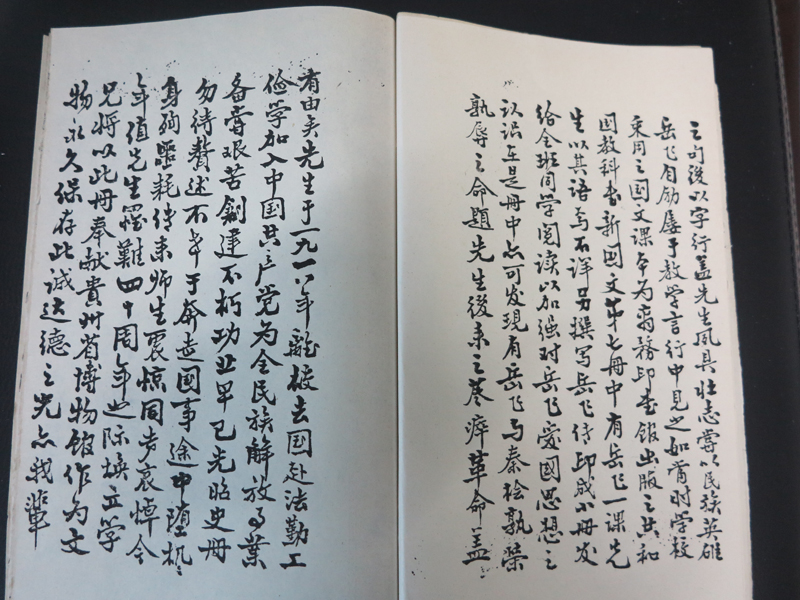 之句後以字行盖先生夙具壮志嘗以民族英雄
岳飞自励屡于教学言行中見之如當时学校
采用之国文课本为商務印書館出版之共和
国教科書新國文第七冊中有岳飞一课先
生以其語焉不详另撰写岳飞传印成小冊发
给全班同学阅读以加强对岳飞爱國思想之
认识在是冊中亦可发現有岳飞与秦桧孰榮
孰辱之命題先生後来之尽瘁革命盖
有由矣先生于一九一八年離校去国赴法勤工
俭学加入中国共产党为全民族解放事業
备嘗艰苦創建不朽功业早已光昭史冊
勿待贅述不幸于奔走國事途中堕机
身殉噩耗传来师生震惊同声哀悼今
年值先生罹難四十周年之际焕立学
兄将以此冊奉献貴州省博物館作为文
物永久保存此诚达德之光亦我輩